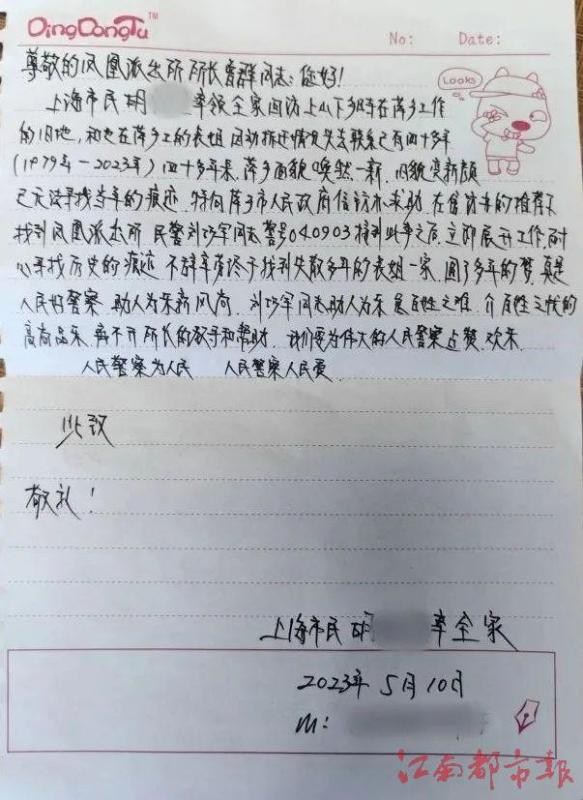 DingDongTu™
No: Date:
Looks
尊敬的凤凰派出所所长 群同志:您好!
上海市民胡 率领全家回访上山下乡时在萍乡工作
的旧地,和也在萍乡工的表姐因动拆迁情况失去联系已有四十多年
(1979年-2023年)四十多年来,萍乡面貌唤然一新,旧貌变新颜
已无法寻找当年的痕迹,特向萍乡市人民政府信访办求助,在信访办的推荐下
找到凤凰派出所,民警刘 军同志警号040903接到此事之后,立即展开工作,耐
心寻找历史的痕迹,不辞辛苦终于找到失散多年的表姐一家,圆了多年的梦,真是
人民好警察,助人为乐新风尚,刘 军同志助人为乐急百姓之难,介百姓之忧的
高尚品采,离不开所长的教导和帮助,我们要为伟大的人民警察点赞,欢乐,
人民警察为人民 人民警察人民爱
此致
敬礼!
上海市民胡 率全家
2023年5月10日
M:
江南都市報